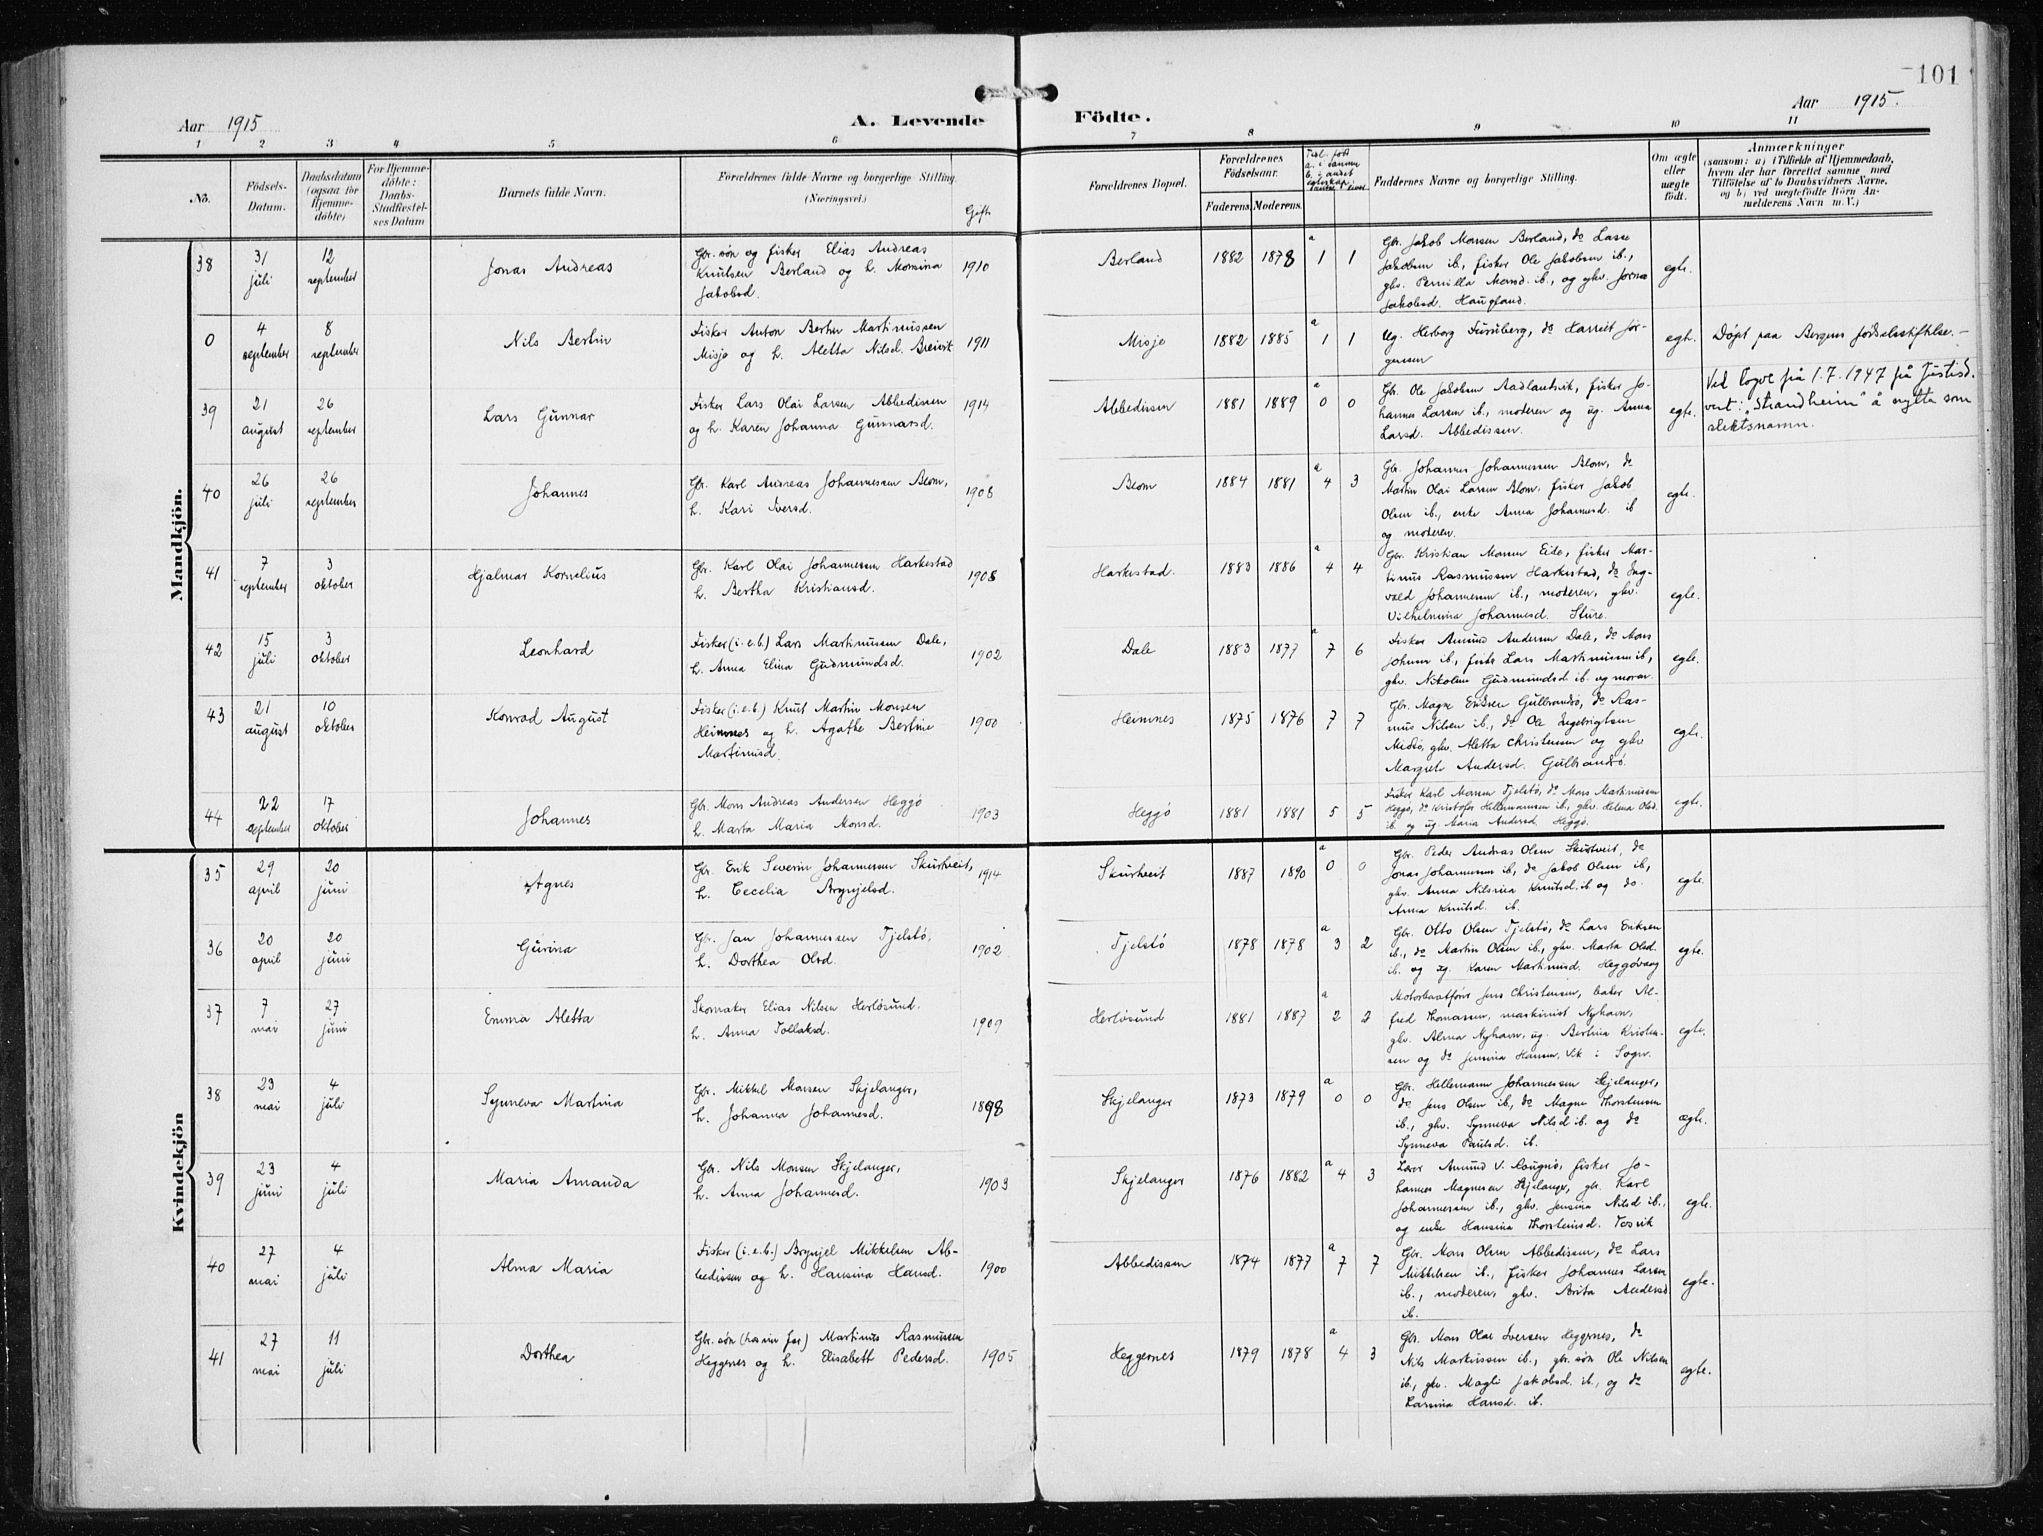 101
Aar 1915
A. Levende Födte.
Aar 1915.
1 2 3 4 5 6 7 8 9 10 11
No.
Födsels-
Datum.
Daabsdatum
(ogsaa for
Hjemme-
döbte)
For Hjemme-
döbte:
Daabs-
Stadfæstel-
ses Datum
Barnets fulde Navn.
Forældrenes fulde Navne og borgerlige Stilling.
(Næringsvei.)
Gift
Forældrenes Bopæl.
Forældrenes
Födselsaar.
Faderens. Moderens.
Faddernes Navne og borgerlige Stilling.
Om ægte
eller
uægte
födt.
Anmærkninger
(saasom: a) i Tilfælde af Hjemmedaab,
hvem der har forrettet samme med
Tilföielse af to Daabsvidners Navne,
og b) ved uægtefödte Börn An-
melderens Navn m. V.)
Mandkjön.
38
31 juli
12 september
Jonas Andreas
Gbr. søn og fisker Elias Andreas
Knutsen Berland og h. Monsina
Jakobsd.
1910
Berland
1882 1878 a 1 1
Gbr. Jakob Monsen Berland, do Lasse
Jakobsen ib., fisker Ole Jakobsen ib.,
gbr. Pernilla Monsd. ib., og ghv. Jorina
Jakobsd. Haugland.
egte.
0
4 september
8 september
Nils Bertin
Fisker Anton Bertin Martinussen
Misje og h. Aletta Nilsd. Breivik
1911
Misje
1882 1885 a 1 1
Ug. Herborg Furuberg, do Harriet Jør-
gensen
egte.
Døpt paa Bergens fødselsstiftelse.-
39
21 august
26 september
Lars Gunnar
Fisker Lars Olai Larsen Abbedissen
og h. Karen Johanna Gunnarsd.
1914
Abbedissen
1881 1889 a 0 0
Gbr. Ole Jakobsen Aadlandsvik, fisker Jo-
hannes Larsen ib., moderen og ug. Anna
Larsd. Abbedissen.
egte.
Ved løyve på 1.7.1947 på Justisd.
vert: "Strandheim" å nytta som
slektsnamn.
40
26 juli
26 september
Johannes
Gbr. Karl Andreas Johannessen Blom,
h. Kari Iversd.
1908
Blom
1884 1881 a 4 3
Gbr. Johannes Johannessen Blom, do
Martin Olai Larsen Blom, fisker Jakob
Olsen ib., enke Anna Johannesd. ib
og moderen.
egte.
41
7 september
3 oktober
Hjalmar Kornelius
Gbr. Karl Olai Johannessen Harkestad
h. Bertha Kristiansd.
1908
Harkestad.
1883 1886 a 4 4
Gbr. Kristian Monsen Eide, fisker Mar-
tinus Rasmussen Harkestad, do Ing-
vald Johannessen ib., moderen, ghv.
Vilhelmina Johannesd. Sture.
egte.
42
15 juli
3 oktober
Leonhard
Fisker (i.e.b.) Lars Martinussen Dale,
h. Anna Elina Gudmundsd.
1902
Dale
1883 1877 a 7 6
Fisker Amund Andersen Dale, do Mons
Johnsen ib., fisker Lars Martinussen ib.,
ghv. Nikoline Gudmundsd ib. og moren.
egte.
43
21 august
10 oktober
Konrad August
Fisker (i.e.b.) Knut Martin Monsen
Heimnes og h. Agathe Bertine
Martinusd.
1900
Heimnes
1875 1876 7 7
Gbr. Magne Eriksen Gulbrandsø, do Ras-
mus Nilsen ib., do Ole Ingebrigtsen
Midtø, ghv. Aletta Christensen og ghv
Margrete Andersd. Gulbrandsø.
egte.
44
22 september
17 oktober
Johannes
Gbr. Mons Andreas Andersen Heggø
h. Marta Maria Monsd.
1903
Heggø
1881 1881 5 5
Fisker Karl Monsen Tjelstø, do Mons Martinussen
Heggø, do Kristofer Hellemannsen ib., ghv. Helena Olsd.
ib. og ug. Maria Andersd. Heggø.
egte.
Kvindekjön
35
29 april
20 juni
Agnes
Gbr. Erik Severin Johannessen Skurtveit,
h. Cecelia Brynjelsd.
1914
Skurtveit
1887 1890 a 0 0
Gbr. Peder Andreas Olsen Skurtveit, do
Jonas Johannessen ib., do Jakob Olsen ib.,
ghv. Anna Nilsina Knutsd. ib og do.
Anna Knutsd. ib.
egte.
36
20 april
20 juni
Gurina
Gbr. Jan Johannessen Tjelstø,
h. Dorthea Olsd.
1902
Tjelstø
1878 1878 a 3 2
Gbr. Otto Olsen Tjelstø, do Lars Eriksen
ib., do Martin Olsen ib., ghv. Marta Olsd.
ib. og ug. Karen Martinusd. Heggøvaag
egte.
37
7 mai
27 juni
Emma Aletta
Skomaker Elias Nilsen Herløsund.
h. Anna Tollaksd.
1909
Herløsund
1881 1887 a 2 2
Motorbaatfører Jens Christensen, baker Al-
fred Thomassen, maskinist Nyhavn,
ghv. Alma Nyhavn, ug. Bertina Kristen-
sen og do Jensina Hansen, Vik i Sogn.
egte.
38
23 mai
4 juli
Synneva Martina
Gbr. Mikkel Monsen Skjelanger,
h. Johanna Johannesd.
1898
Skjelanger
1873 1879 a 0 0
Gbr. Hellemann Johannessen Skjelanger,
do Jens Olsen ib., do Magne Thorstensen
ib., ghv. Synneva Nilsd ib. og do
Synneva Paulsd. ib.
ægte.
39
23 juni
4 juli
Maria Amanda
Gbr. Nils Monsen Skjelanger,
h. Anna Johannesd.
1903
Skjelanger
1876 1882 a 4 3
Lærer Amund V. Rougnø, fisker Jo-
hannes Magnesen Skjelanger, gbr. Karl
Johannessen ib., ghv. Jensina Nilsd ib.,
og enke Hansina Thorsteinsd. Tosvik
egte.
40
27 mai
4 juli
Alma Maria
Fisker (i.e.b.) Brynjel Mikkelsen Ab-
bedissen og h. Hansina Hansd.
1900
Abbedissen
1874 1877 a 7 7
Gbr. Mons Olsen Abbedissen, do Lars
Mikkelsen ib., fisker Johannes Larsen
ib., moderen, ghv. Brita Andersd
ib.
egte.
41
27 mai
11 juli
Dorthea
Gbr. søn (hos sin far) Martinus Rasmussen
Heggernes og h. Elisabeth Pedersd.
1905
Heggernes
1879 1878 a 4 3
Gbr. Mons Olai Iversen Heggernes, do
Nils Markussen ib., gbr. søn Ole Nilsen
ib., ghv. Magli Jakobsd. ib., og do
Larsina Hansd. ib.
egte.